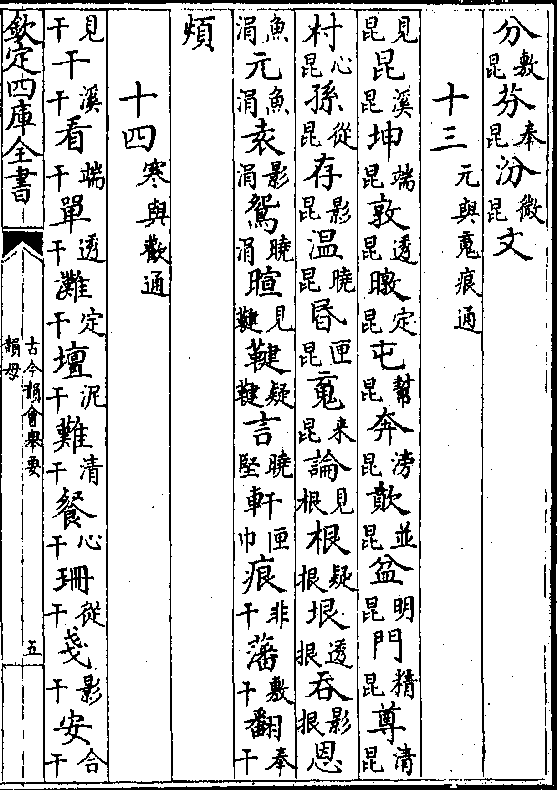 分敷昆芬奉昆汾微昆文
十三元與䰟痕通
見昆昆溪昆坤端昆敦透昆暾定昆屯幫昆奔滂昆歕並昆盆明昆門精昆尊清昆
村心昆孫從昆存影昆温曉昆昬匣昆䰟來昆論見根根疑根垠透根吞影根恩
魚涓元魚涓袁影涓鴛曉涓暄見鞬鞬疑鞬言曉堅軒匣巾痕非干藩敷干翻奉干
煩
十四寒與歡通
見干干溪干看端干單透干灘定干壇泥干難清干餐心干珊從干戔影干安合干
欽定四庫全書
古今韻會舉要
韻母
五